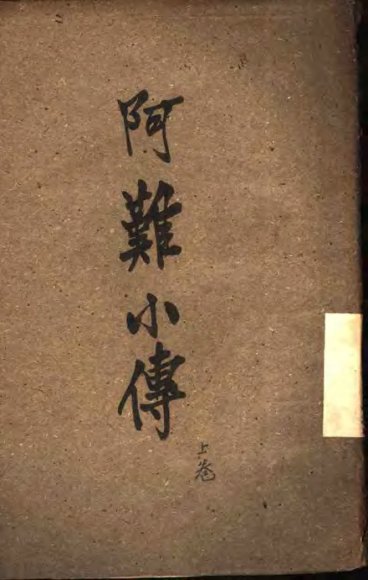 阿難小傳
上卷